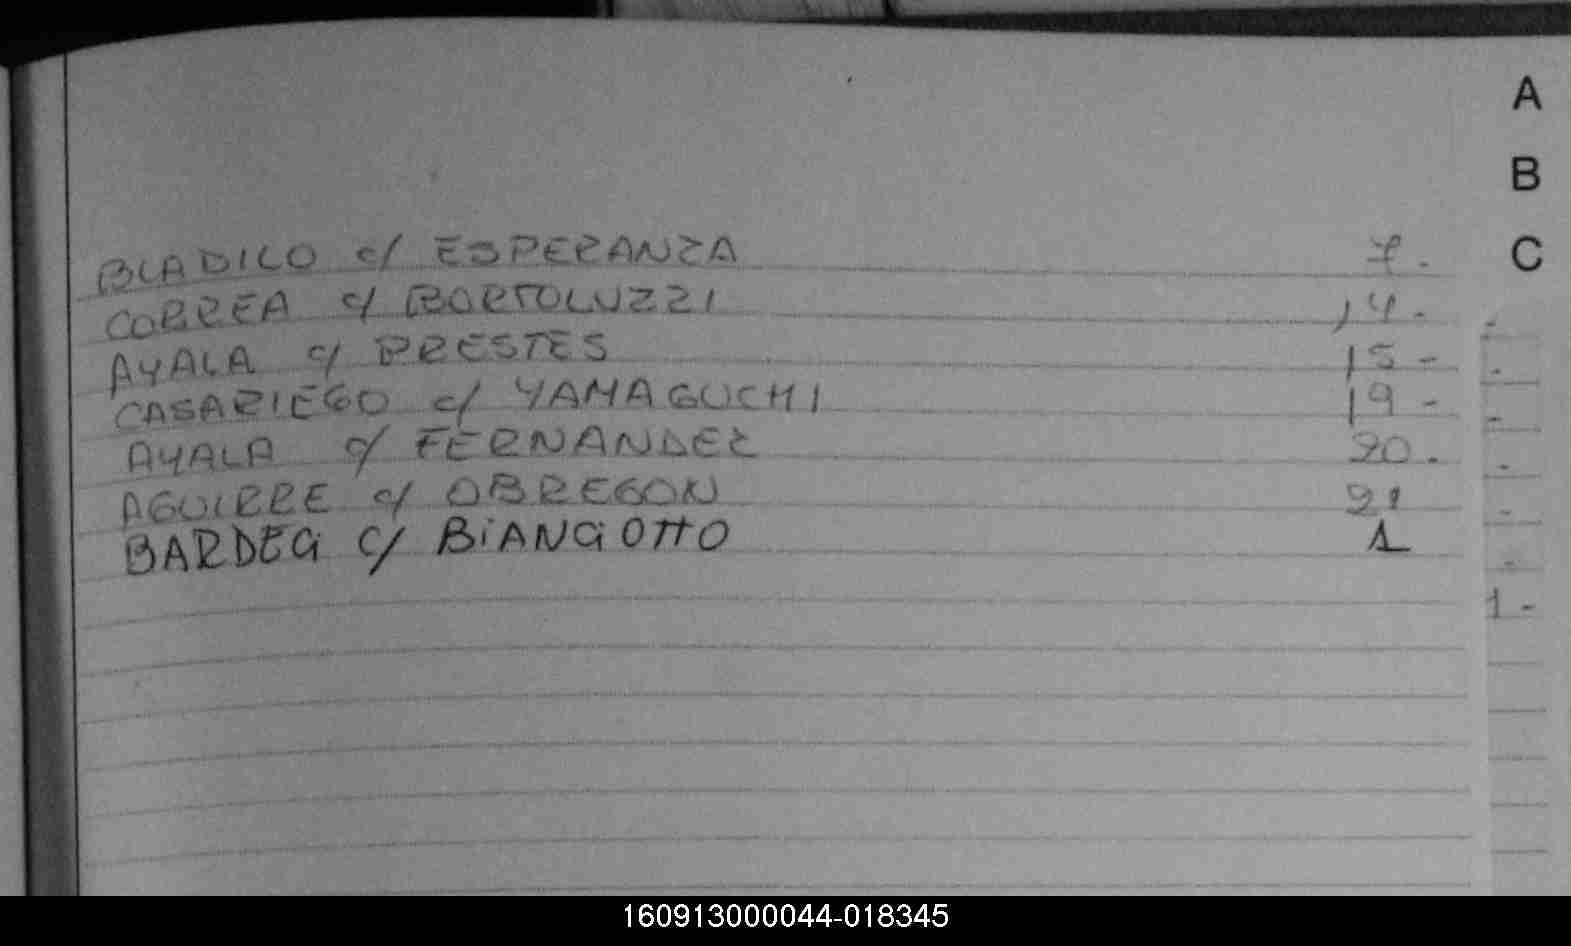 A
B
C
BLADILO c/ ESPERANZA 7.
CORREA c/ BORTOLUZZI 14.
AYALA c/ PRESTES 15-
CASARIEGO c/ YAMAGUCHI 19-
AYALA c/ FERNANDEZ 20.
AGUIRRE c/ OBREGON 21
BARDEG c/ BiANGOTTO 1
1-
160913000044-018345